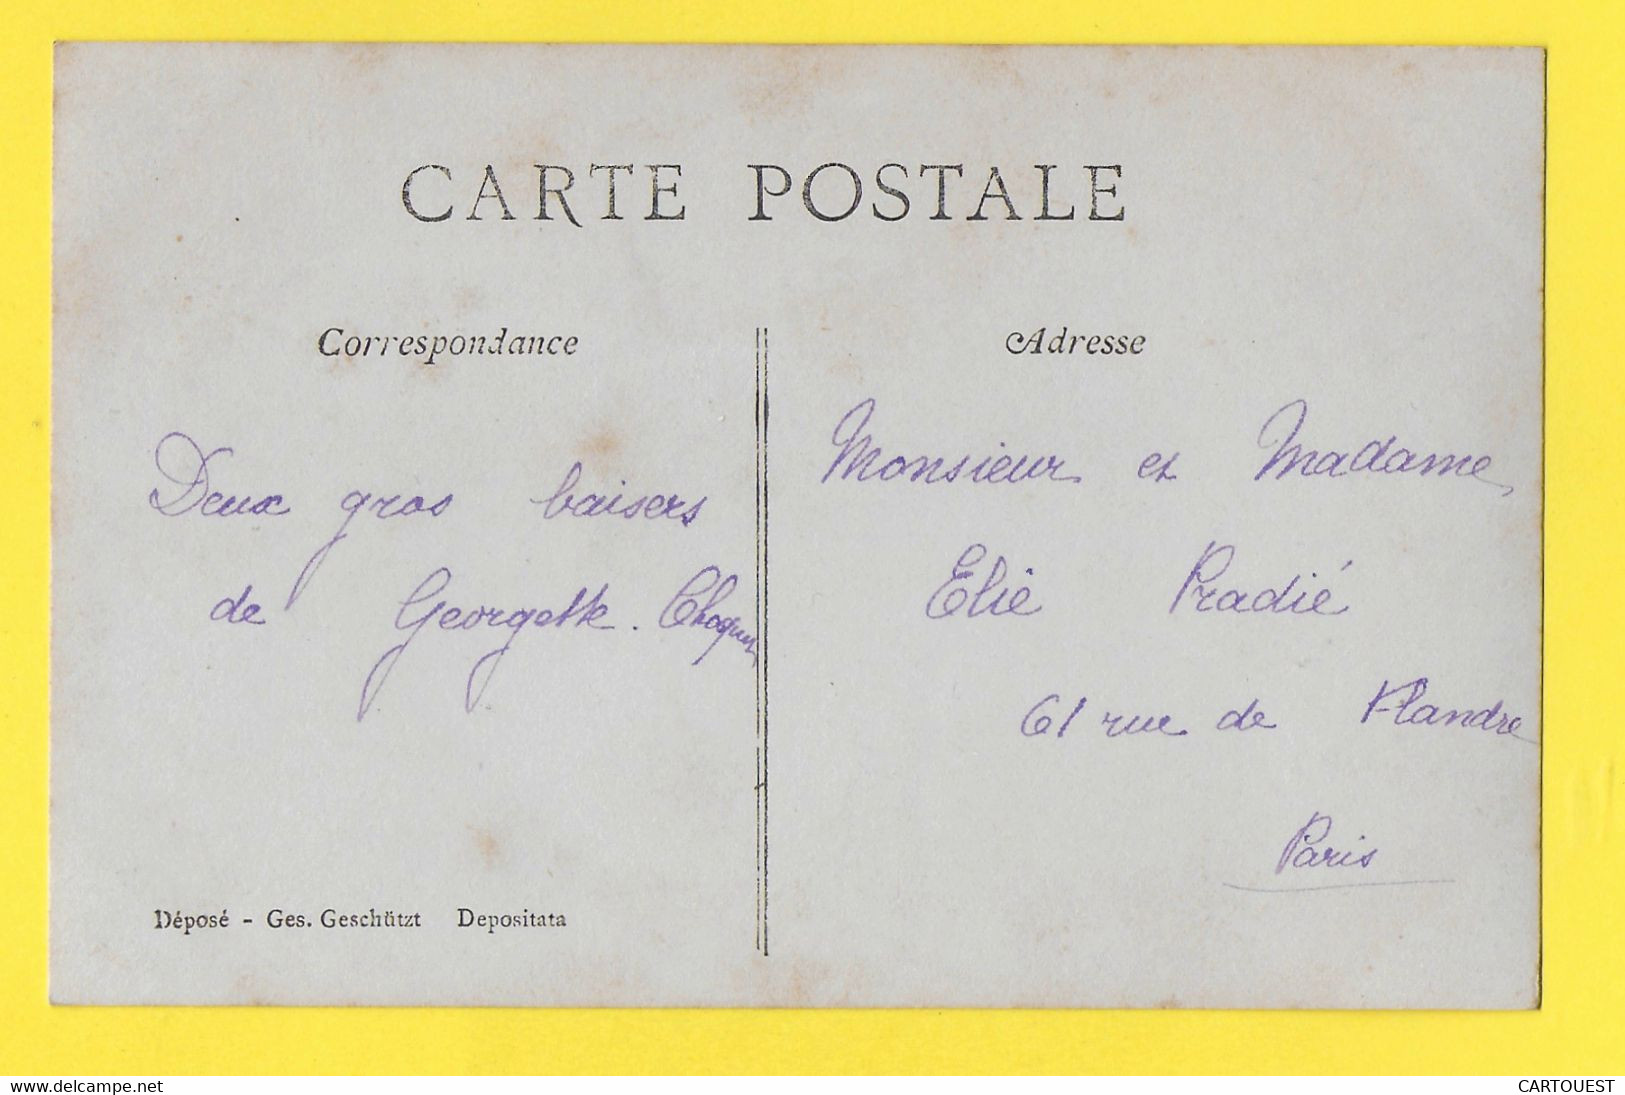 CARTE POSTALE
Correspondance
Adresse
Deux gros baisers
de Georgette.
Monsieur et Madame
Elie Pradié
61 rue de Flandre
Paris
Déposé - Ges. Geschützt Depositata
www.delcampe.net
CARTOUEST